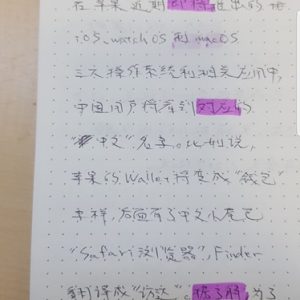 在苹果近期即将推出的新
iOS、watchOS 和 macOS
三大操作系统和相关应用中,
中国用户将看到对应的
“中文”名字。比如说,
苹果的Wallet将变成“钱包”
来样,后面有了中文小尾巴
“Safari浏览器”,Finder
翻译成“访达”据了解,为了